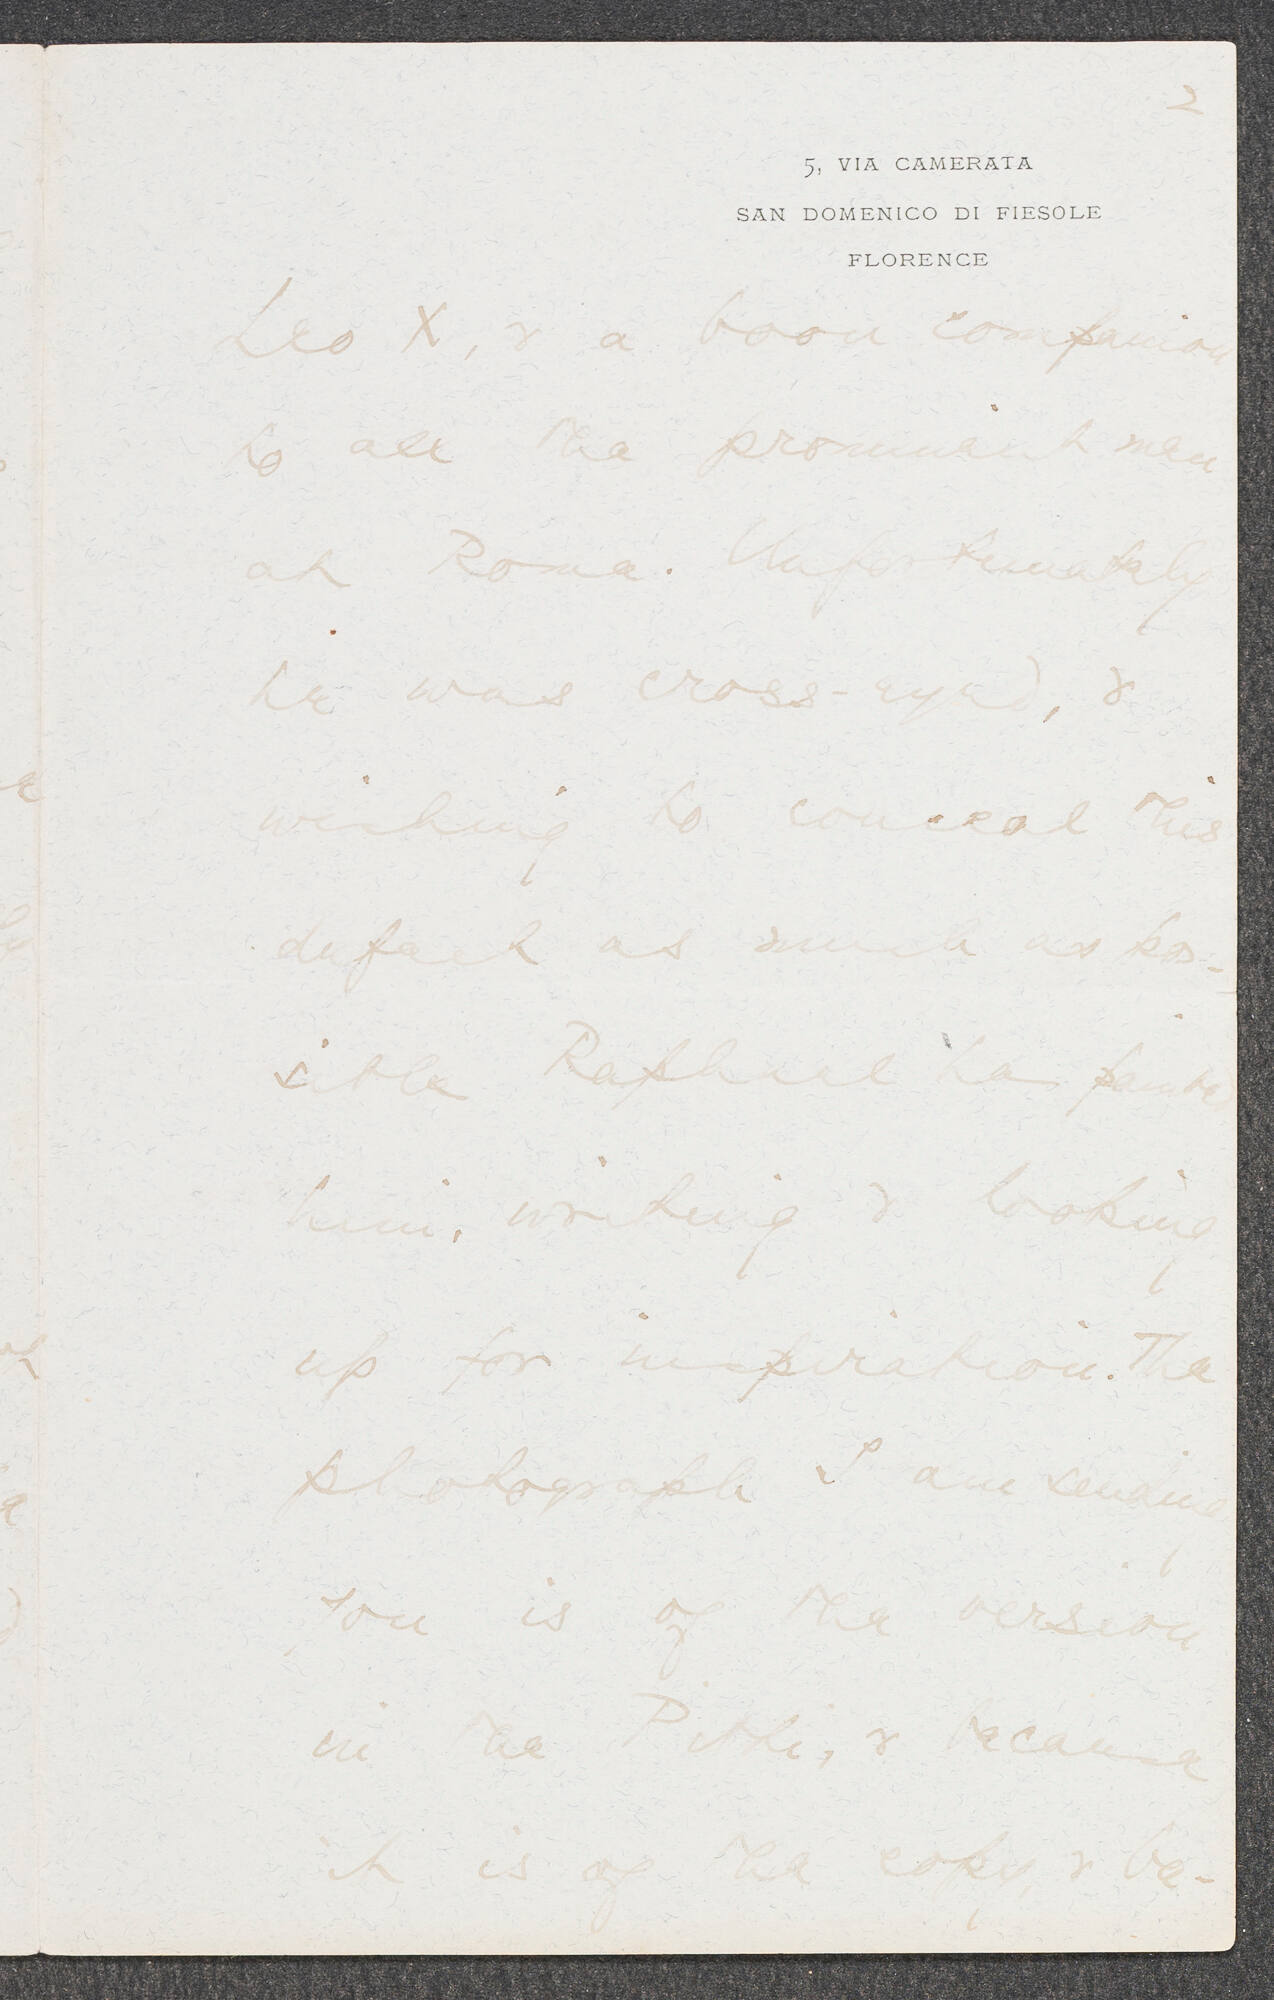 2
5, VIA CAMERATA
SAN DOMENICO DI FIESOLE
FLORENCE
Leo X, & a boon companion
to all the prominent men
at Rome. Unfortunately
he was cross-eyed, &
wishing to conceal this
defect as much as pos-
sible Raphael has painted
him, writing & looking
up for inspiration. The
photograph I am sending
you is of the version
in the Pitti, & because
it is of the copy, & be-